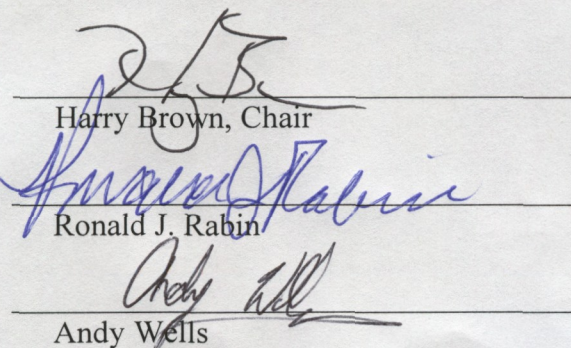 Harry Brown, Chair
Ronald J Rabin
Ronald J. Rabin
Andy Wells
Andy Wells